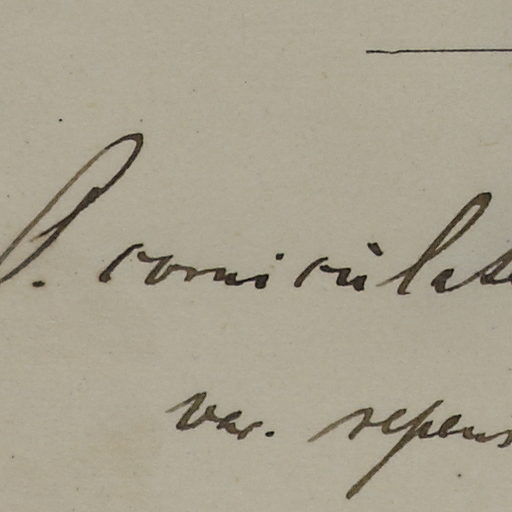 O. corniculat
var. repens